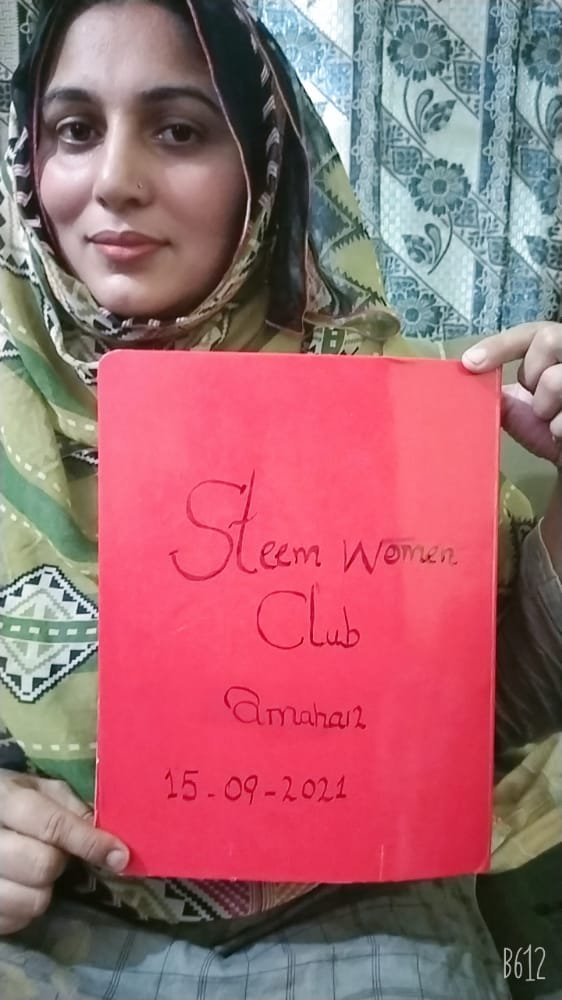 Steem Women
Club
@maha12
15-09-2021
B612